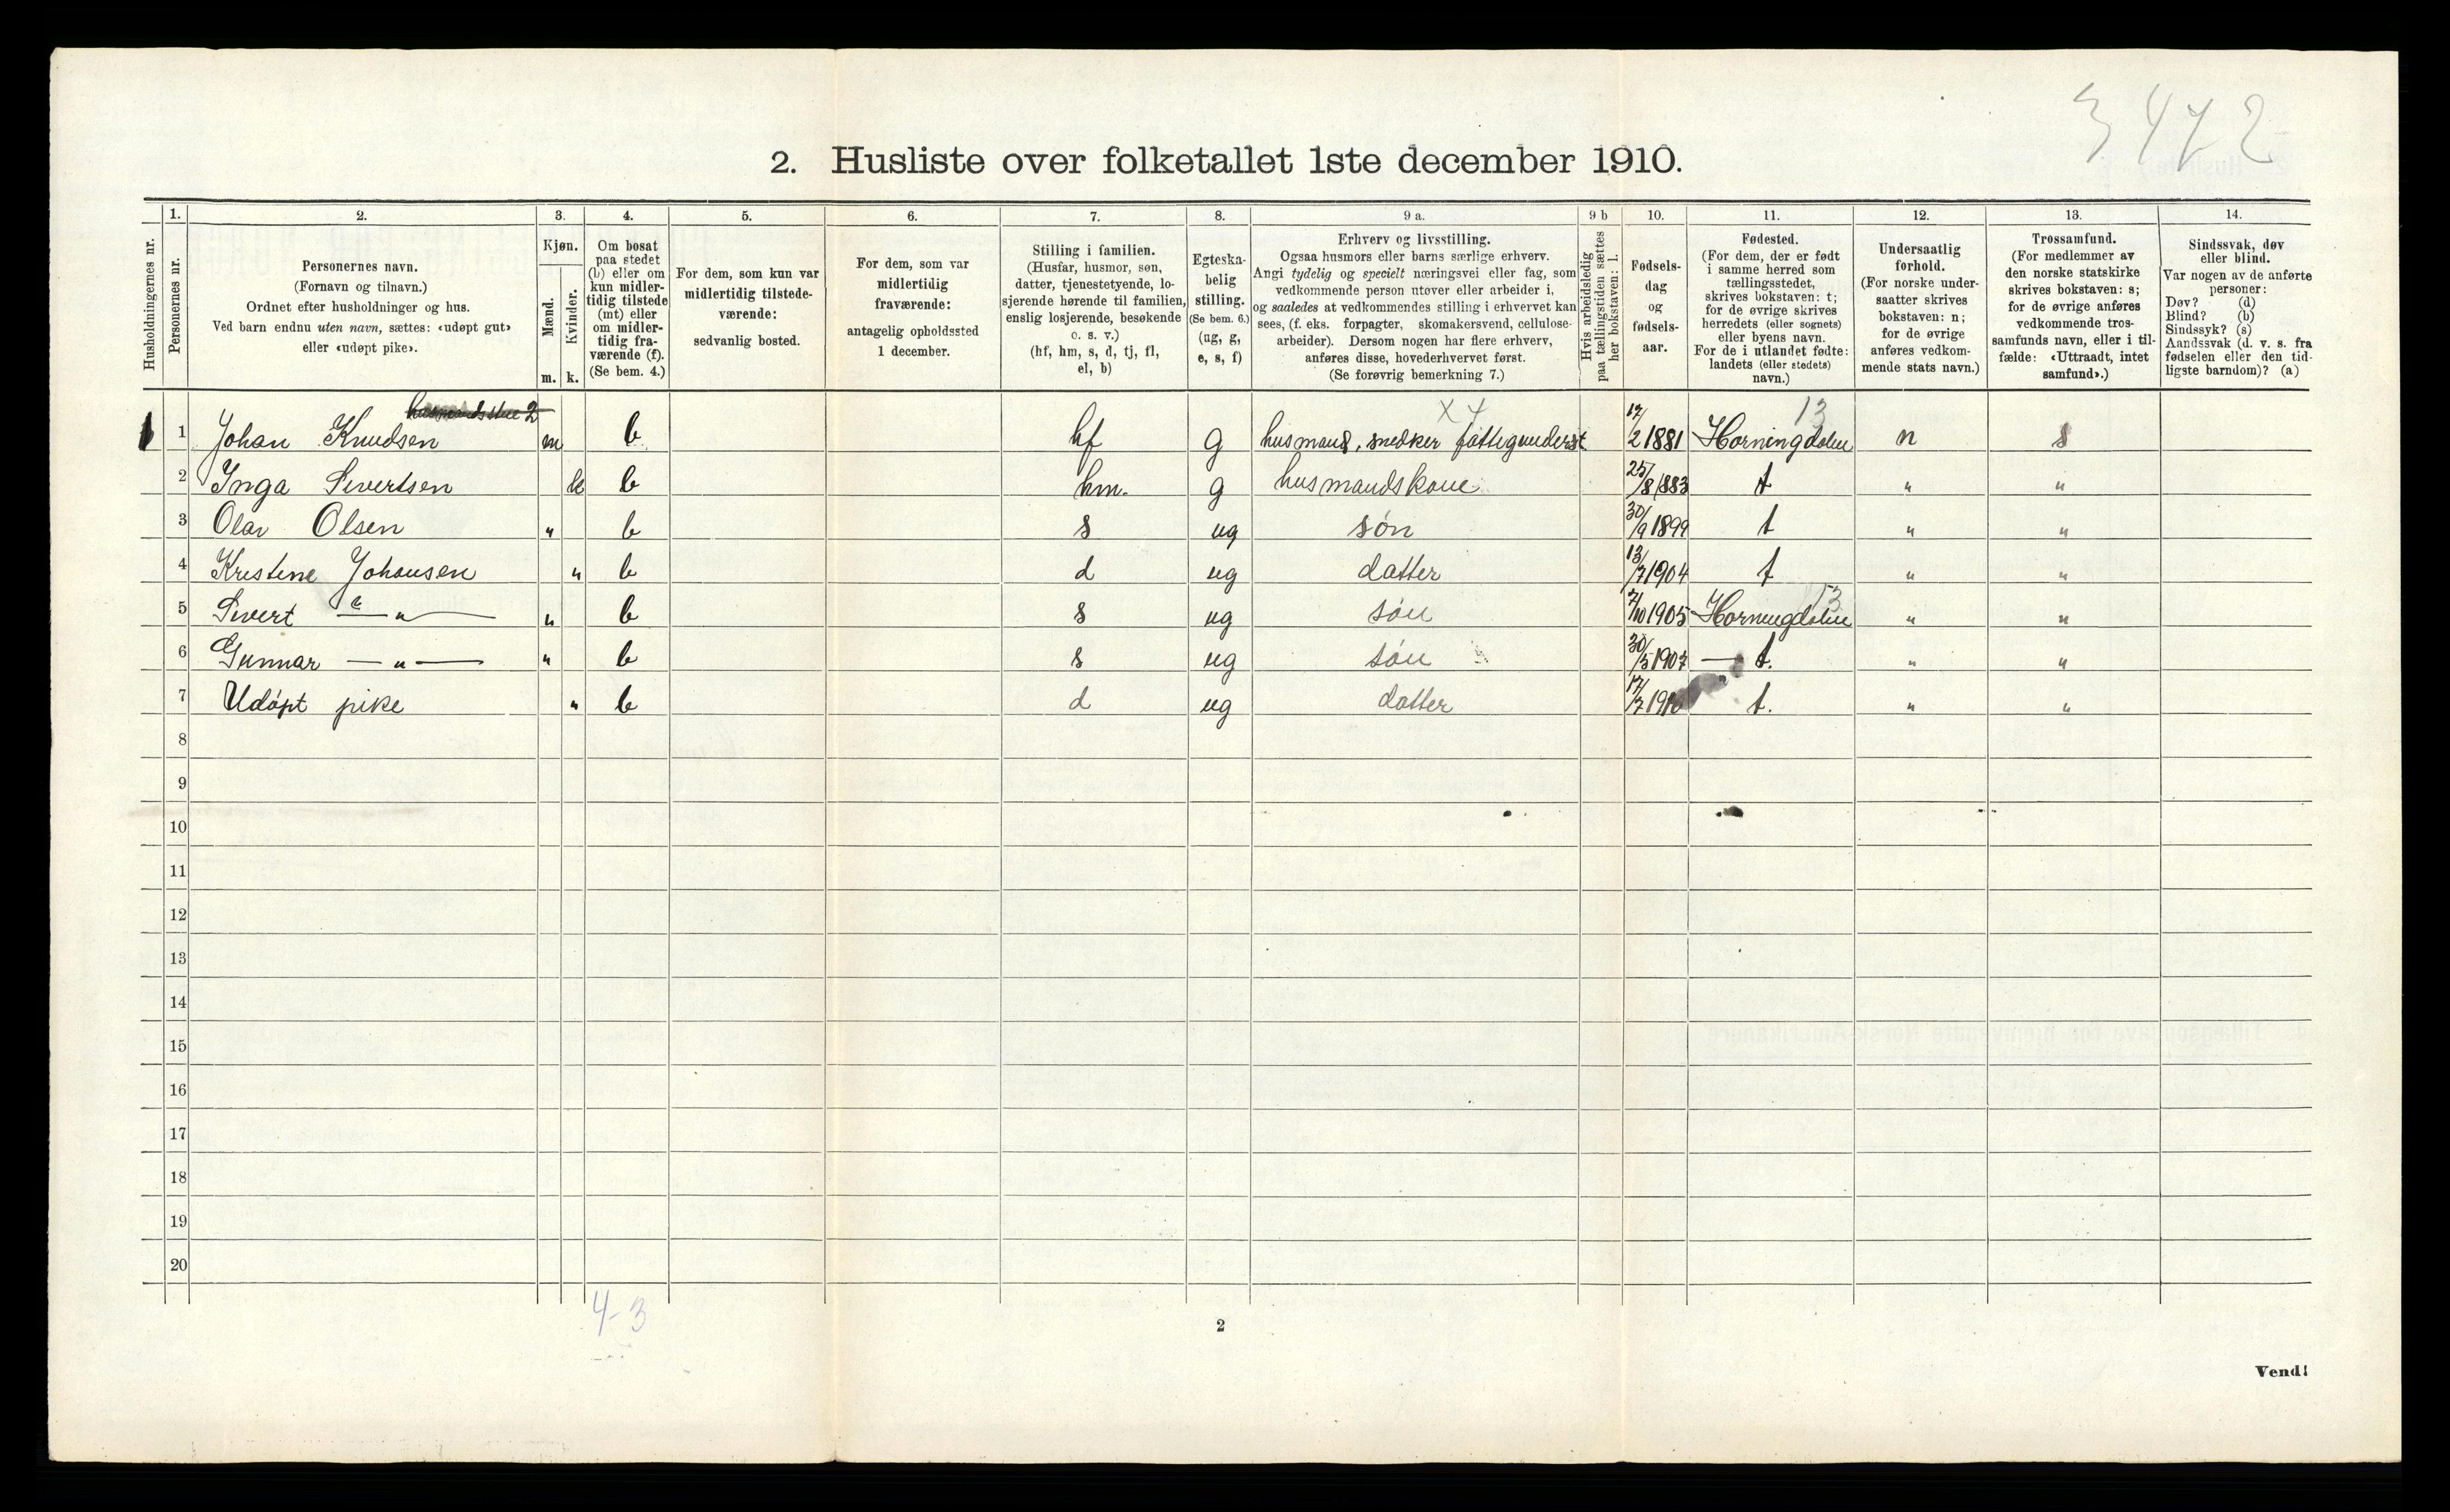 3472
2. Husliste over folketallet 1ste december 1910.
1. 2. 3. 4. 5. 6. 7. 8. 9 a. 9 b 10. 11. 12. 13. 14.
Husholdningernes nr.
Personernes nr.
Personernes navn.
(Fornavn og tilnavn.)
Ordnet efter husholdninger og hus.
Ved barn endnu uten navn, sættes: «udøpt gut»
eller «udøpt pike».
Kjøn.
Mænd.
Kvinder.
m. k.
Om bosat
paa stedet
(b) eller om
kun midler-
tidig tilstede
(mt) eller
om midler-
tidig fra-
værende (f).
(Se bem. 4.)
For dem, som kun var
midlertidig tilstede-
værende:
sedvanlig bosted.
For dem, som var
midlertidig
fraværende:
antagelig opholdssted
1 december.
Stilling i familien.
(Husfar, husmor, søn,
datter, tjenestetyende, lo-
sjerende hørende til familien,
enslig losjerende, besøkende
o. s. v.)
(hf, hm, s, d, tj, fl,
el, b)
Egteska-
belig
stilling.
(Se bem. 6.)
(ug, g,
e, s, f)
Erhverv og livsstilling.
Ogsaa husmors eller barns særlige erhverv.
Angi tydelig og specielt næringsvei eller fag, som
vedkommende person utøver eller arbeider i,
og saaledes at vedkommendes stilling i erhvervet kan
sees, (f. eks. forpagter, skomakersvend, cellulose-
arbeider). Dersom nogen har flere erhverv,
anføres disse, hovederhvervet først.
(Se forøvrig bemerkning 7.)
Hvis arbeidsledig
paa tællingstiden sættes
her bokstaven: l.
Fødsels-
dag
og
fødsels-
aar.
Fødested.
(For dem, der er født
i samme herred som
tællingsstedet,
skrives bokstaven: t;
for de øvrige skrives
herredets (eller sognets)
eller byens navn.
For de i utlandet fødte:
landets (eller stedets)
navn.)
Undersaatlig
forhold.
(For norske under-
saatter skrives
bokstaven: n;
for de øvrige
anføres vedkom-
mende stats navn.)
Trossamfund.
(For medlemmer av
den norske statskirke
skrives bokstaven: s;
for de øvrige anføres
vedkommende tros-
samfunds navn, eller i til-
fælde: «Uttraadt, intet
samfund».)
Sindssvak, døv
eller blind.
Var nogen av de anførte
personer:
Døv? (d)
Blind? (b)
Sindssyk? (s)
Aandssvak (d. v. s. fra
fødselen eller den tid-
ligste barndom)? (a)
husmandsstue 2
x 4 13
1 1 Johan Knudsen m b hf g husmand, snedker fattigunderst 17/2 1881 Horningdalen n s
2 Inga Sivertsen k b hm. g husmandskone 25/8 1883 t " "
3 Olav Olsen " b s ug søn 30/9 1899 t " "
4 Kristine Johansen " b d ug datter 13/7 1904 t " "
13
5 Sivert — " — " b s ug søn 7/10 1905 Horningdalen " "
6 Gunnar — " — " b s ug søn 30/5 1907 — t. " "
7 Udøpt pike " b d ug datter 17/7 1910 t. " "
8
9
10
11
12
13
14
15
16
17
18
19
20
4-3
2
Vend!